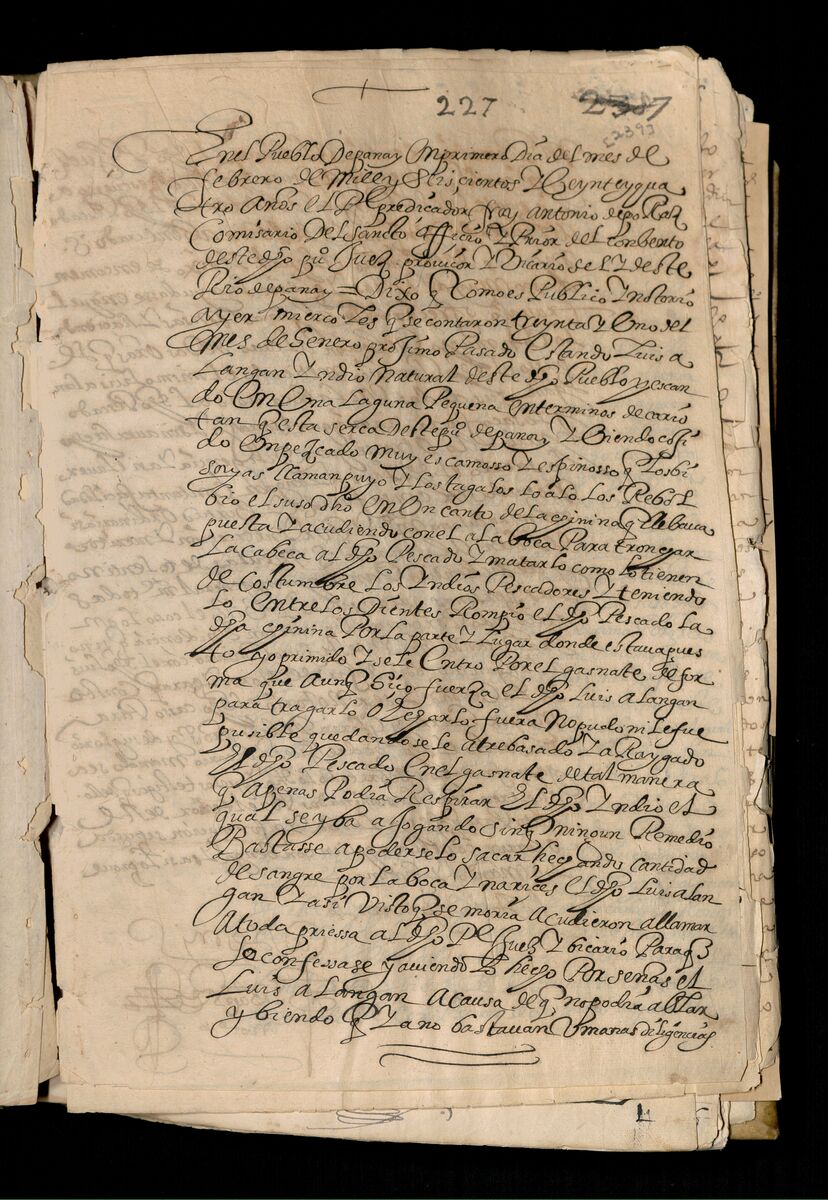 227 2387
E2392
En el Pueblo de panay En primero Dia del mes de
febrero de Mill y Seiscientos y Veynte y qua
tro Años el Pe predicador fray Antonio de porras
Comisario Del Sancto officio y Prior del Conbento
deste dho puo Juez provisor y Vicario de el y deste
Rio de panay = Dixo q Como es Publico y notorio
ayer miercoles q se contaron treynta y Uno del
Mes de henero proximo Pasado Estando Luis a
langan Yndio natural deste dho Pueblo pescan
do En Una laguna Pequeña En terminos de
tan q esta serca deste puo de panay y Biendo coji
do Un pezcado muy escamosso y espinosso q los bi
sayas llaman puyo y los tagalos
bio el suso dho En Un canto de la q llebava
puesta y acudiendo con el a la boca Para tronçar
La cabeca al dho Pescado y matarlo como lo tienen
de costumbre los Yndios Pescadores y teniendo
lo Entre los Dientes Rompio el dho Pescado la
dha Por la parte y lugar donde estava pues
to y oprimido y se le Entro Por el gasnate de for
ma que aunq hiço fuerza el dho Luis alangan
para tragarlo o hecharlo fuera No pudo ni le fue
pusible quedandosele atrebasado y aRaygado
El dho Pescado En el gasnate de tal manera
q apenas Podia Respirar El dho Yndio el
qual se yba ahogando sin q ningun Remedio
Bastasse a poderselo sacar hechando cantidad
de sangre por la boca y narices el dho Luis alan
gan y asi Visto q se moria acudieron a llamar
a toda priessa al dho Pe Juez y bicario Para q
lo confessase y aviendolo hecho Por señas el
Luis alangan a causa de q no podia ablar
y biendo q ya no bastavan Umanas diligencias